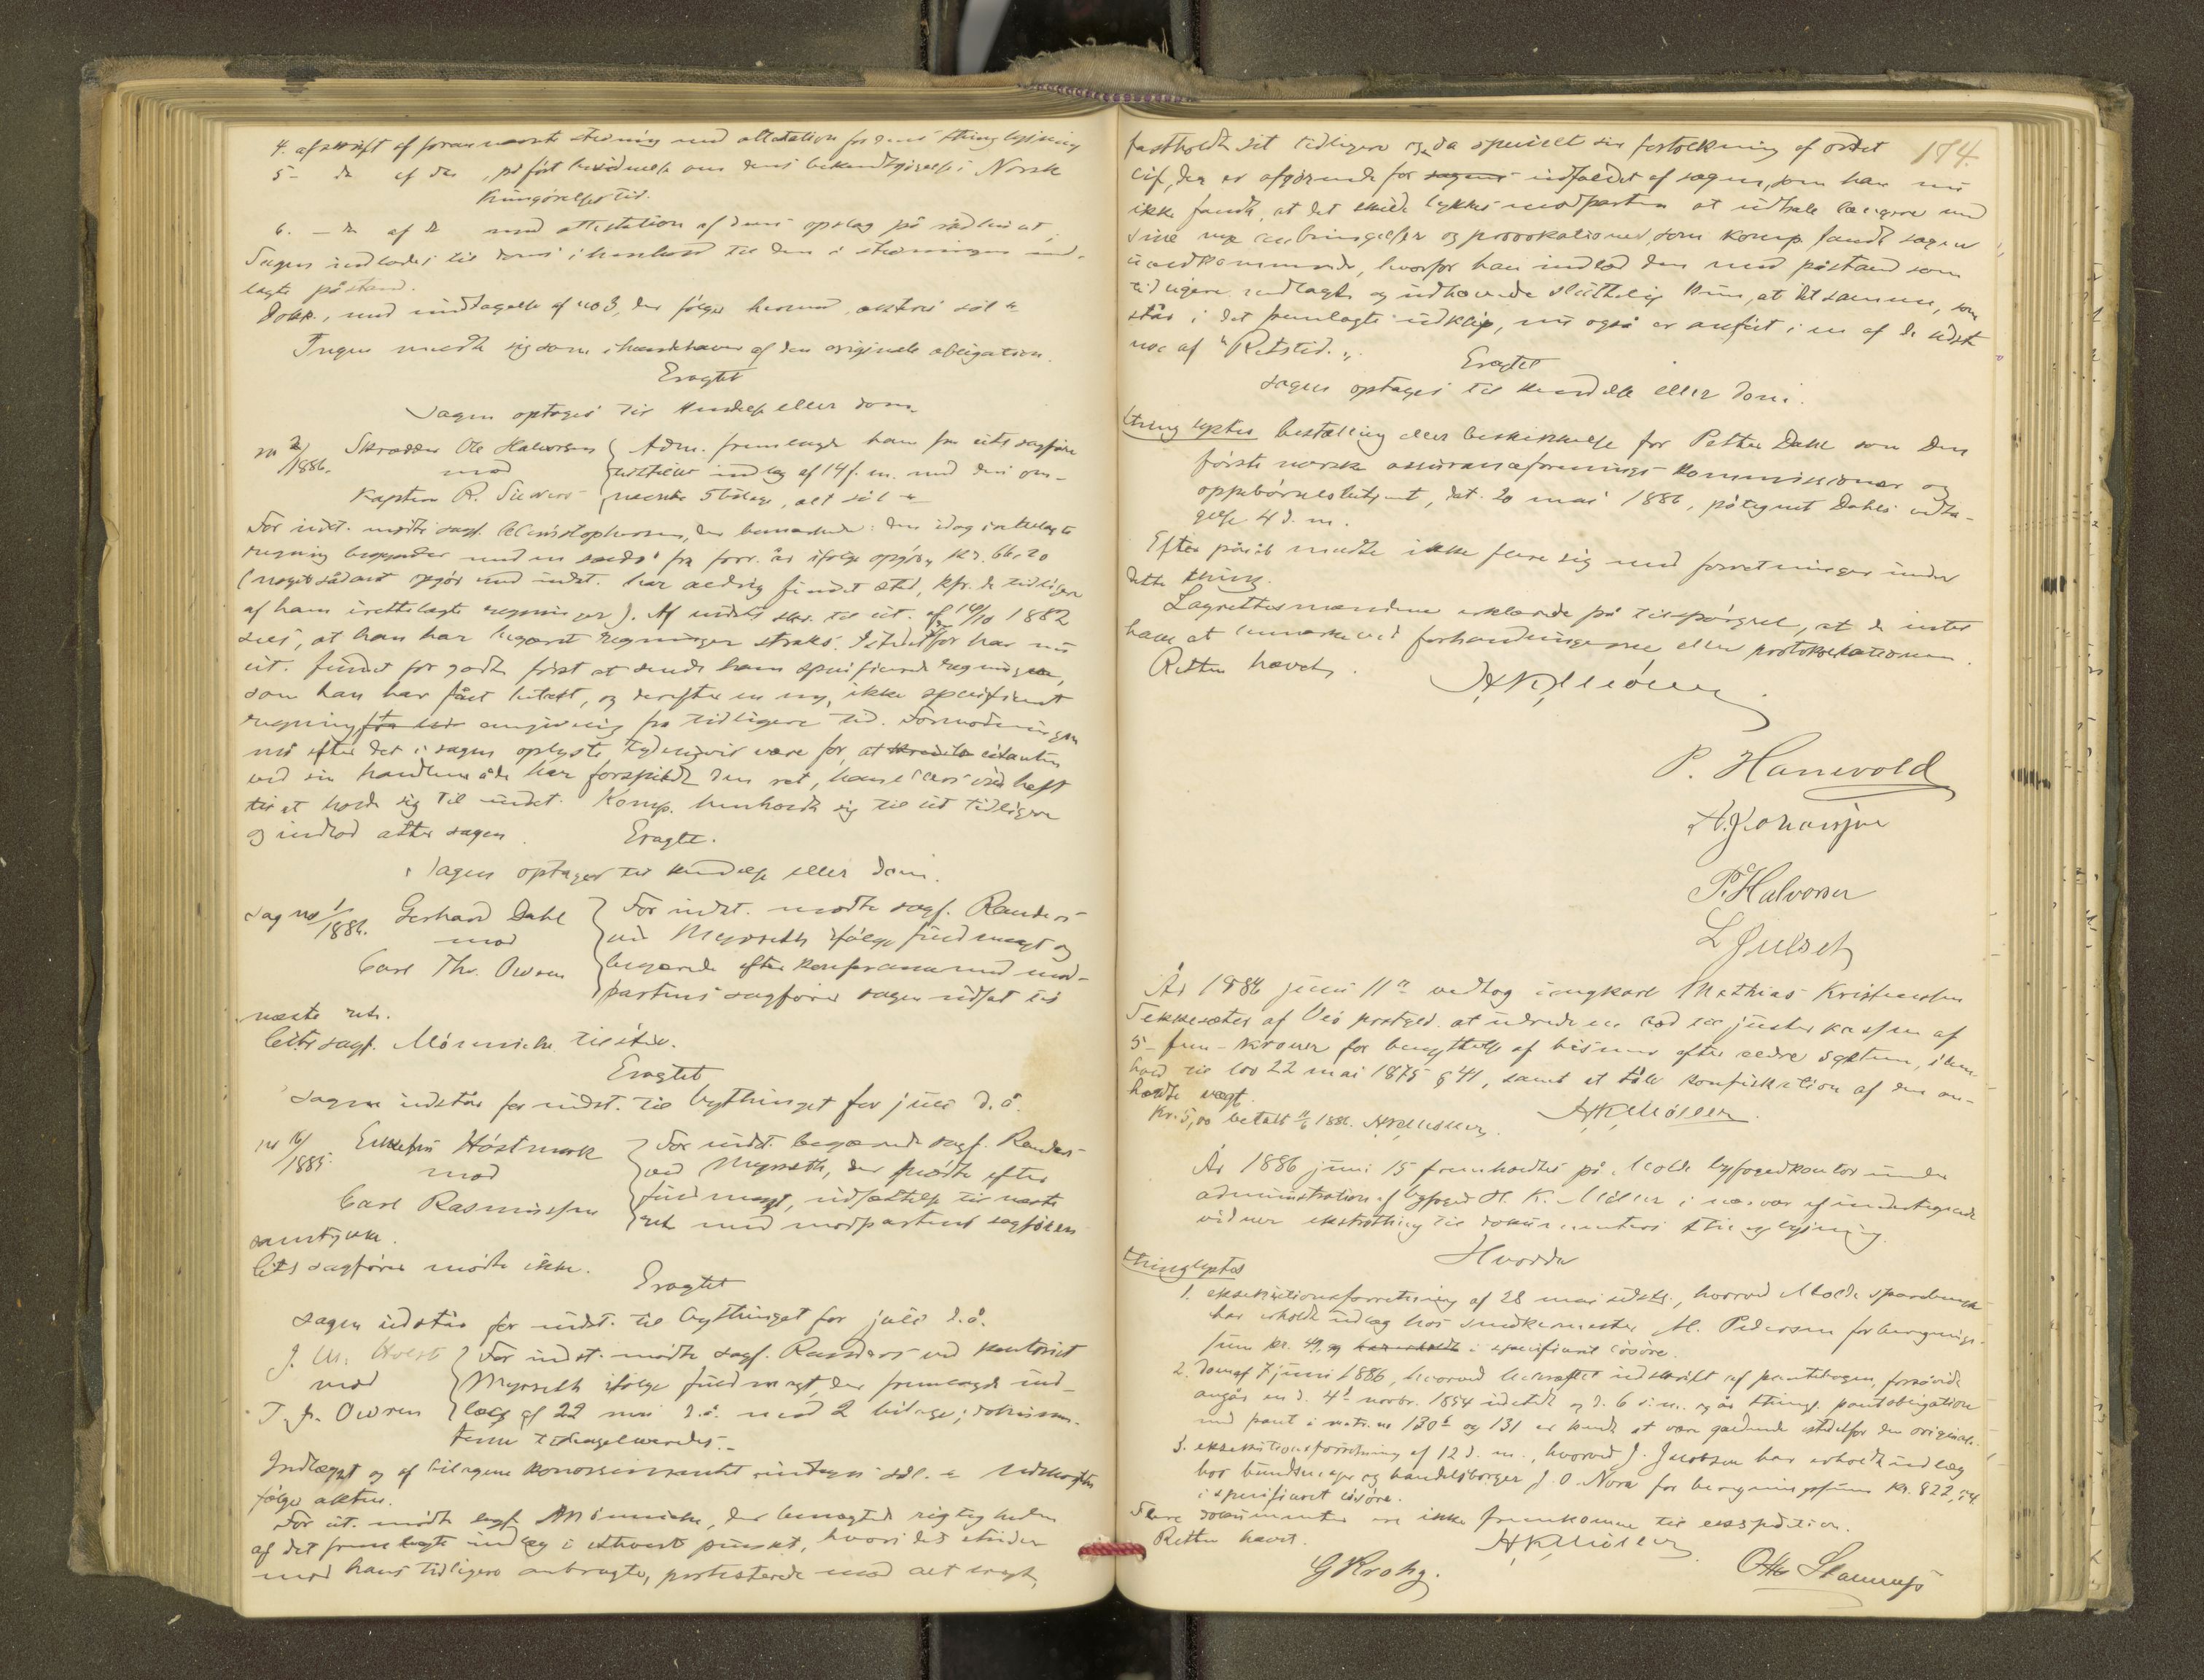 4. afskrift af forannævnte stævning med attestation for dens thinglysning
5 - do af do, påført bevidnelse om dens bekendtgørelse i Norsk
Kungørelsestid.
6. - do af do med attestation af dens opslag på rådhuset.
Sagen indlodes til doms i henhold til den i stævningen ned-
lagte påstand.
Dokk., med undtagelse af no 3, der følger herved, aktori sål a
Ingen meldte sig som ihændehaver af den originale obligation.
Eragtet
Sagen optages til kendelse eller dom.
no 2/1886. Skrædder Ole Halvorsen Adm. fremlagde ham fra citi sagfører
mod tilstillet indlæg af 14 f. m. med dets om-
Kaptein R. Sievers nævnte 5 bilage, alt sål a
For indst. mødte sagf. Christophersen, der bemærkede: den idag irettelagte
regning begynder med en saldo fra forr. år ifølge opgjør, kr. 66,20
(noget sådant opgjør med indst. har aldrig fundet sted, kfr. de tidligere
af ham irettelagte regninger). Af indsts skr. til cit. af 14/10 1882
sees, at han har begært regninger straks. Istedetfor har nu
cit. fundet for godt først at sende ham specificerede regninger,
som han har fået betalt, og derefter en ny, ikke specificeret
regning fra angivelig fra tidligere tid. Formodningen
må efter det i sagen oplyste tydeligvis være for, at citanten
ved sin handlemåde har forspildt den ret, han ellers vilde haft
til at holde sig til indst. Komp. henholdt sig til sit tidligere
og indlod atter sagen.
Eragtet.
Sagen optages til kendelse eller dom.
Sag no 1/1886. Gerhard Dahl For indst. mødte sagf. Randers
mod ved Myrseth ifølge fuldmagt og
Carl Thr. Owren begærede efter konferance med mod-
partens sagfører sagen udsat til
næste ret.
Cits sagf. Mörniche tilstede.
Eragtet
Sagen udstår for indst. til bythinget for juli d. å.
no 16/1885. Høstmark For indst. begærede sagf. Randers
mod ved Myrseth, der mødte efter
Carl Rasmussen fuldmagt, udsættelse til næste
ret med modpartens sagførers
samtykke.
Cits sagfører mødte ikke.
Eragtet
Sagen udstår for indst. til bythinget for juli d. å.
J. M. Holst For indst. mødte sagf. Randers ved kontorist
mod Myrseth ifølge fuldmagt, der fremlagde ind-
T. Fr. Owren læg af 22 mai d. å. med 2 bilage; dokumen-
terne
Indlægget og af bilagene konossementet indtages sål. a
følge akten.
For cit. mødte sagf. Mörniche, der benægtede rigtigheden
af det fremlagte indlæg i ethvert punkt, hvori det strider
mod hans tidligere anbragte, protesterede mod alt sagt,
174.
fastholdt sit tidligere og da specielt sin fortolkning af ordet
cif, der er afgørende for sagens udfaldet af sagen, som han nu
ikke fandt, at det skulde lykkes modparten at udhale længere med
sine nye anbringelser og provokationer, som komp. fandt sagen
uvedkommende, hvorfor han indlod den med påstand som
tidligere nedlagt og udhævede sluttelig kun, at det samme, som
står i det fremlagte udklip, nu også er anført i en af de sidste
noe af "Retstid.".
Eragtet
Sagen optages til kendelse eller dom.
thinglystes bestalling eller beskikkelse for Petter Dahl som Den
første norske assuranceforenings kommissionær og
oppebørselsbetjent, dat. 20 mai 1886, påtegnet Dahls vedta-
gelse 4 d. m.
Efter påråb meldte ikke flere sig med forretninger under
dette thing.
Lagrettesmændene erklærede på tilspørgsel, at de intet
havde at bemærke ved forhandlingerne eller protokollationen.
Retten hævet.
H K Møller
P. Hanevold
A. Johansen
P. Halvorsen
L Julset
År 1886 juni 11te vedtog ungkarl Mathias Kristensen
Sekkesæter af Veø prstgjd. at udrede en bod til justerkassen af
5 - fem - kroner for benyttelse af bismer efter ældre system, i hen-
hold til lov 22 mai 1875 § 41, samt at tåle konfiskation af den an-
holdte vægt.
Kr. 5,00 betalt 11/6 1886. H K Møller. H K Møller.
År 1886 juni 15 fremholdtes på Molde byfogedkontor under
administration af byfoged H. K. Møller i nærvær af undertegnede
vidner ekstrathing til dokumenters thinglysning.
Hvorda
thinglystes
1. eksekutionsforretning af 28 mai sidstl., hvorved Molde sparebank
har erholdt udlæg hos snedkermester M. Pedersen for beregnings-
sum kr. 49, i specificeret løsøre.
2. dom af 7 juni 1886, hvorved bekræftet udskrift af pantebogen, forsåvidt
angår en d. 4de novbr. 1854 udstedt og d. 6 s. m. og år thingl. pantobligation
med pant i matr. no 130b og 131 er kendt at være gældende istedetfor den originale.
3. eksekutionsforretning af 12 d. m., hvorved J. Jacobsen har erholdt udlæg
hos bundtmager og handelsborger J. O. Nora for beregningssum kr. 822,54
i specificeret løsøre.
Flere dokumenter ere ikke fremkomne til ekspedition.
Retten hævet.
H K Møller
G Krohg. Otto